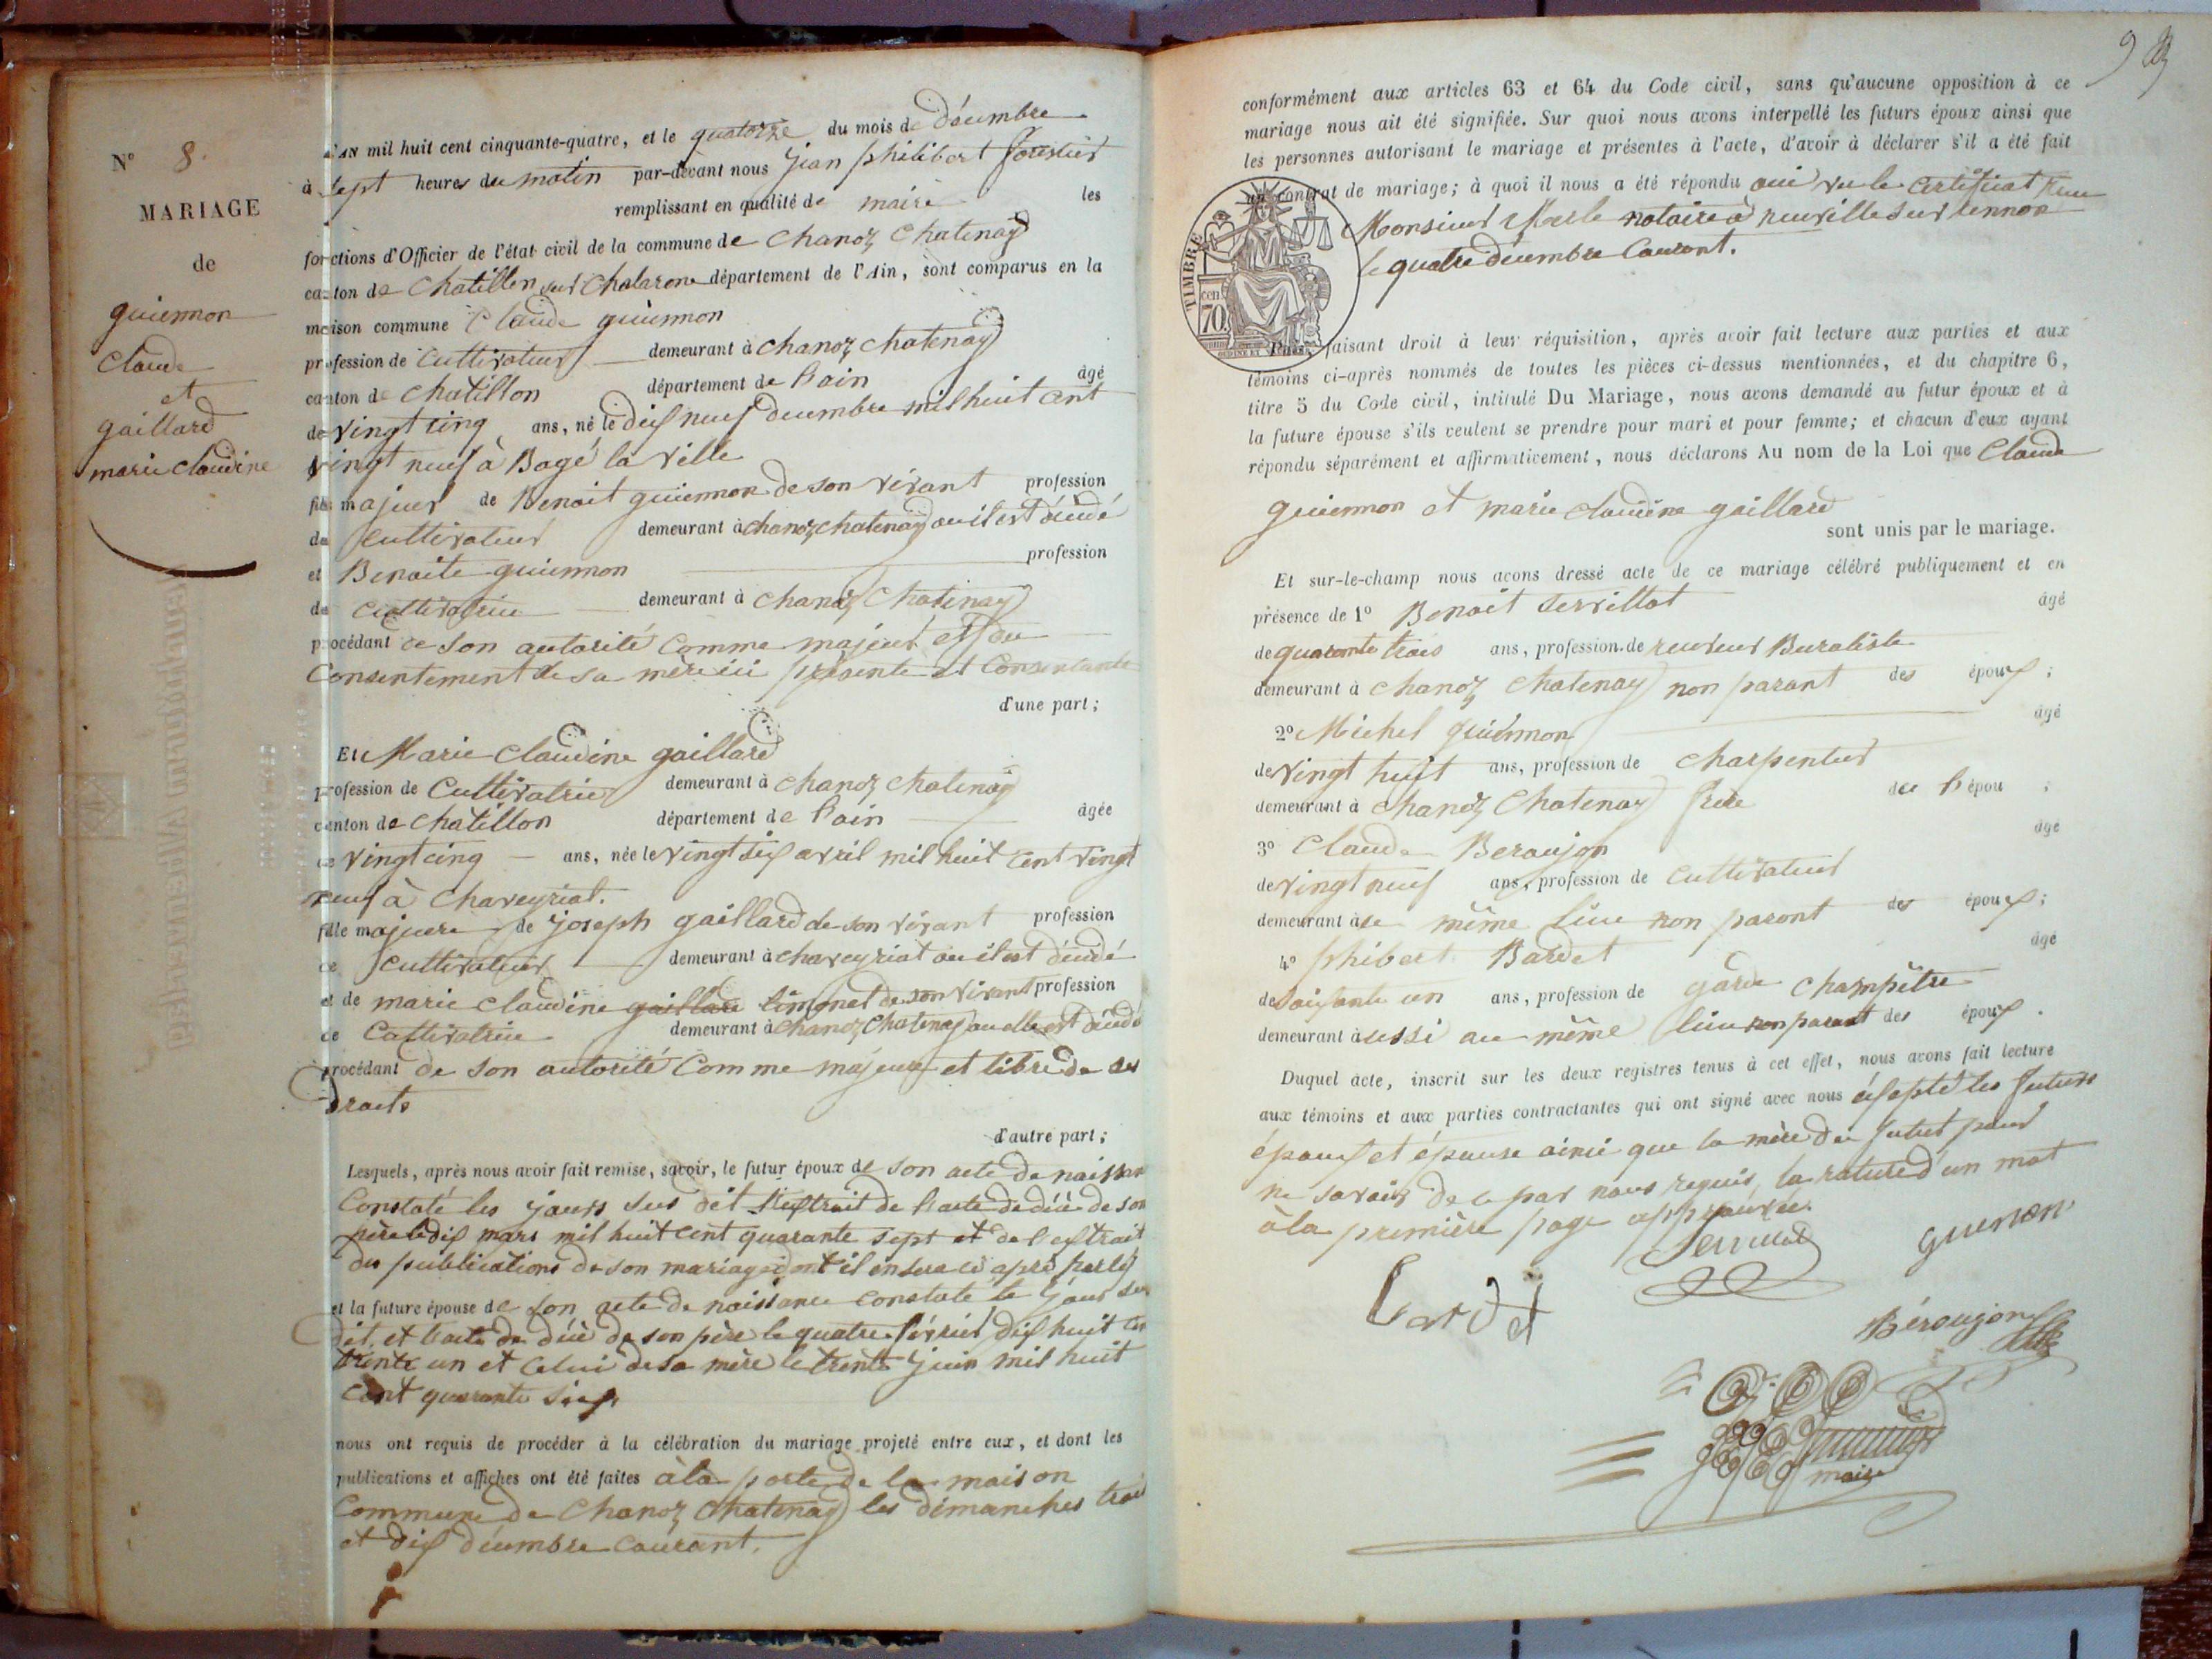 N° 8.
MARIAGE
de
guienon
Claude
et
gaillard
marie claudine
L'AN mil huit cent cinquante-quatre, et le quatorze du mois de décembre
à sept heures du matin par-devant nous jean philibert
remplissant en qualité de maire les
fonctions d'Officier de l'état civil de la commune de Chanoz Chatenay
canton de Chatillon sur Chalarone département de l'Ain, sont comparus en la
maison commune Claude guienon
profession de Cultivateur demeurant à Chanoz Chatenay
canton de Chatillon département de l'ain âgé
de Vingt cinq ans, né le dix neuf decembre mil huit cent
vingt neuf à Bagé la Ville
fils majeur de Benoit guienon de son vivant profession
de Cultivateur demeurant à chanoz chatenay ou il est décédé
et Benoite guienon profession
de Cultivatrice demeurant à Chanoz Chatenay
procédant de son autorité Comme majeur et du
Consentement de sa mère ici présente et Consentante
d'une part;
Et Marie Claudine gaillard
profession de Cultivatrice demeurant à Chanoz Chatenay
canton de Chatillon département de l'ain âgée
de Vingt cinq ans, née le Vingt six avril mil huit Cent Vingt
neuf à Chaveyriat.
fille majeure de joseph gaillard de son vivant profession
de Cultivateur demeurant à chaveyriat ou il est décédé
et de marie claudine gaillard limonet de son vivant profession
de Cultivatrice demeurant à Chanoz Chatenay ou elle est décédé
procédant de son autorité Comme majeure et libre de ses
Droits
d'autre part;
Lesquels, après nous avoir fait remise, savoir, le futur époux de son acte de naissance
Constaté les jours sus dit l'extrait de l'acte de décè de son
père le dix mars mil huit cent quarante sept et de l'extrait
des publications de son mariage dont il en sera ci après parlé
et la future épouse de son acte de naissance Constaté le jour sus
dit, et l'acte de décè de son père le quatre février dix huit cent
trente un et Celui de sa mère le trente juin mil huit
Cent quarante six
nous ont requis de procéder à la célébration du mariage projeté entre eux, et dont les
publications et affiches ont été faites à la porte de la maison
Commune de Chanoz Chatenay les dimanches trois
et dix décembre Courant.
9
conformément aux articles 63 et 64 du Code civil, sans qu'aucune opposition à ce
mariage nous ait été signifiée. Sur quoi nous avons interpellé les futurs époux ainsi que
les personnes autorisant le mariage et présentes à l'acte, d'avoir à déclarer s'il a été fait
un contrat de mariage; à quoi il nous a été répondu oui vu le Certificat
Monsieur notaire à neuville sur rennon
le quatre décembre Courant.
TIMBRE
70 cen
Puis, faisant droit à leur réquisition, après avoir fait lecture aux parties et aux
témoins ci-après nommés de toutes les pièces ci-dessus mentionnées, et du chapitre 6,
titre 5 du Code civil, intitulé Du Mariage, nous avons demandé au futur époux et à
la future épouse s'ils veulent se prendre pour mari et pour femme; et chacun d'eux ayant
répondu séparément et affirmativement, nous déclarons Au nom de la Loi que Claude
guienon et marie claudine gaillard
sont unis par le mariage.
Et sur-le-champ nous avons dressé acte de ce mariage célébré publiquement et en
présence de 1° Benoit Servillat âgé
de quarante trois ans, profession de receveur Buraliste
demeurant à Chanoz Chatenay non parant des époux;
2° Michel guienon âgé
de Vingt huit ans, profession de Charpentier
demeurant à Chanoz Chatenay frere de l'épou;
3° Claude Beraujon âgé
de Vingt neuf ans, profession de Cultivateur
demeurant à ce même lieu non parant des époux;
4° phibert Bardet âgé
de soixante un ans, profession de garde Champêtre
demeurant aussi au même lieu non parant des époux.
Duquel acte, inscrit sur les deux registres tenus à cet effet, nous avons fait lecture
aux témoins et aux parties contractantes qui ont signé avec nous excepté les futurs
époux et épouse ainsi que la mère du futur pour
ne savoir de ce par nous requis, la rature d'un mot
à la première page approuvée.
Servillat
guenon
Bardet
Béraujon
maire